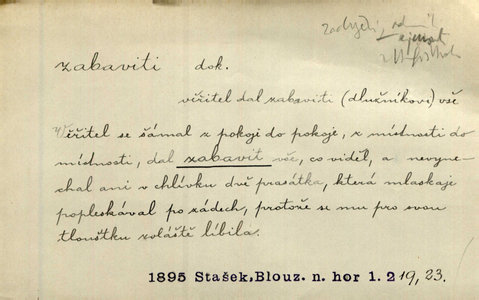 zabaviti dok.
věřitel dal zabaviti (dlužníkovi) vše
Věřitel se šámal z pokoje do pokoje, z místnosti do
místnosti, dal zabavit vše, co viděl, a nevyne-
chal ani v chlívku dvě prasátka, která mlaskaje
popleskával po zádech, protože se mu pro svou
tloušťku zvláště líbila.
1895 Stašek, Blouz. n. hor 1. 219, 23.